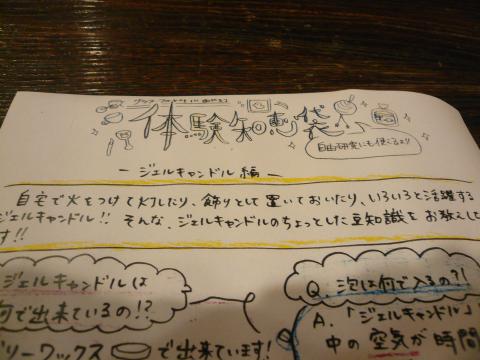 体験知恵袋
自由研究にも使えるよ♪
－ジェルキャンドル編－
自宅で火をつけて灯したり、飾りとして置いておいたり、いろいろと活躍する
ジェルキャンドル!! そんな、ジェルキャンドルのちょっとした豆知識をお教えし
す!!
ジェルキャンドルは
何で出来ているの!?
リーワックス で出来ています!
Q. 泡は何で入るの?!
A. 「ジェルキャンドル」
中の空気が時間